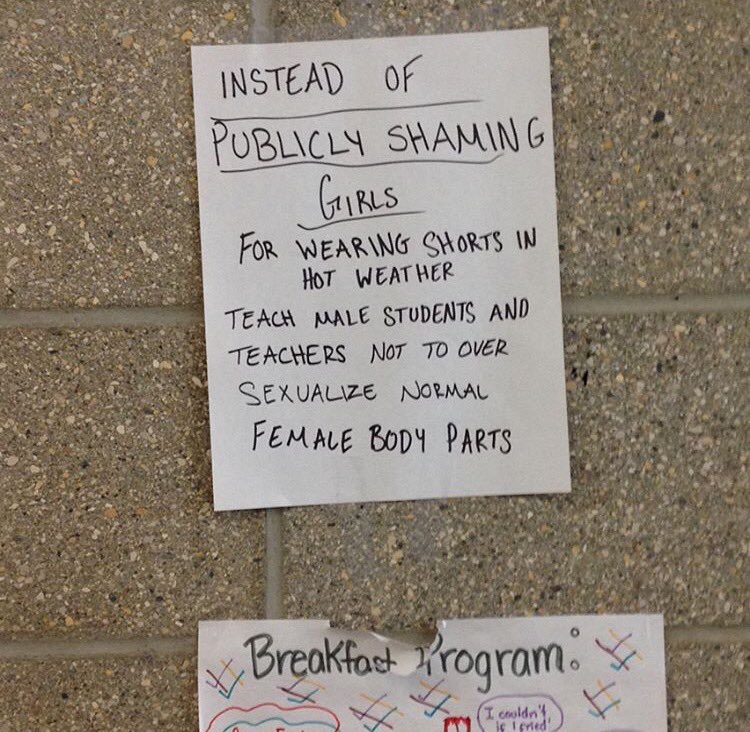 INSTEAD OF
PUBLICLY SHAMING
GIRLS
FOR WEARING SHORTS IN
HOT WEATHER
TEACH MALE STUDENTS AND
TEACHERS NOT TO OVER
SEXUALIZE NORMAL
FEMALE BODY PARTS
Breakfast Program:
I couldn't